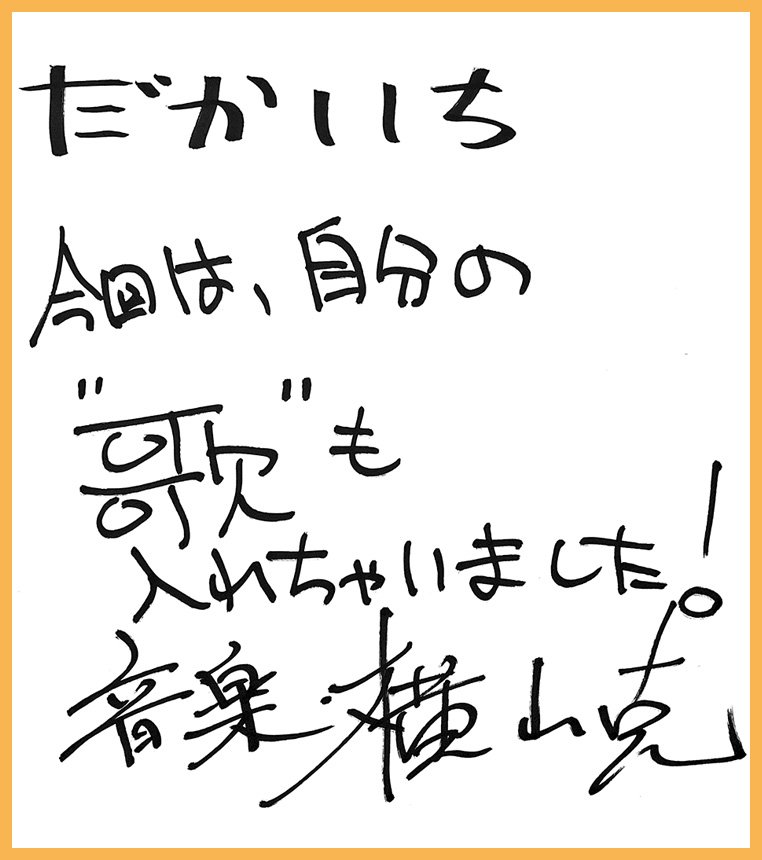 だかいち
今回は、自分の
"歌"も
入れちゃいました!
音楽・横山克